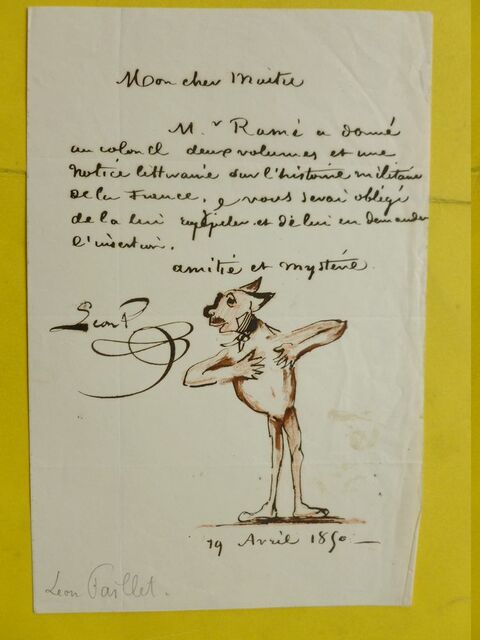 Mon cher Maitre
M.r Ramé a donné
au colonel deux volumes et une
notice litteraire sur l'histoire militaire
de la France. je vous serai obligé
de la lui rappeler et de lui en demander
l'insertion.
amitié et mystère
Leon P
19 Avril 1850
Leon Paillet.